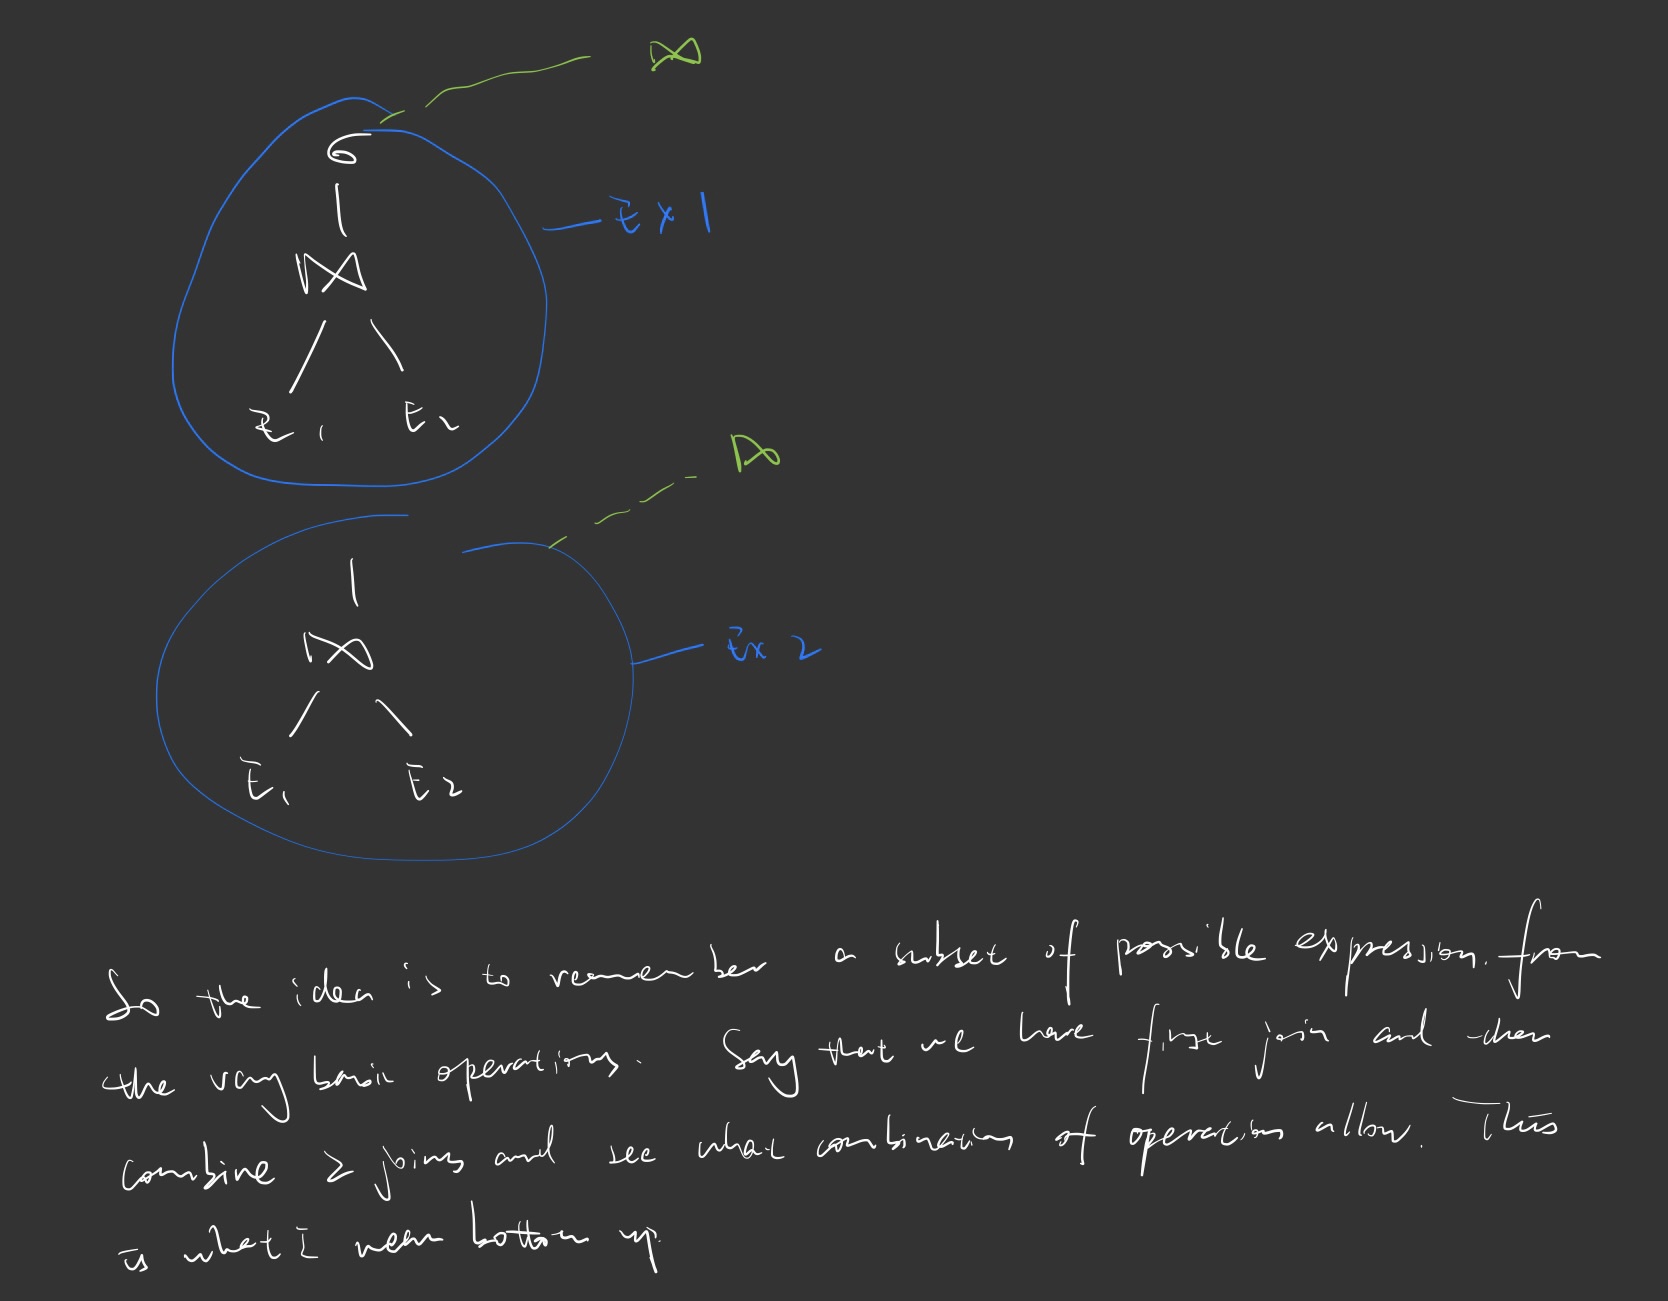 ⋈
σ
Ex 1
⋈
E1 E2
⋈
Ex 2
⋈
E1 E2
So the idea is to remember a subset of possible expression. from
the very basic operations. Say that we have first join and then
combine 2 joins and see what combination of operations allow. This
is what I mean bottom up.